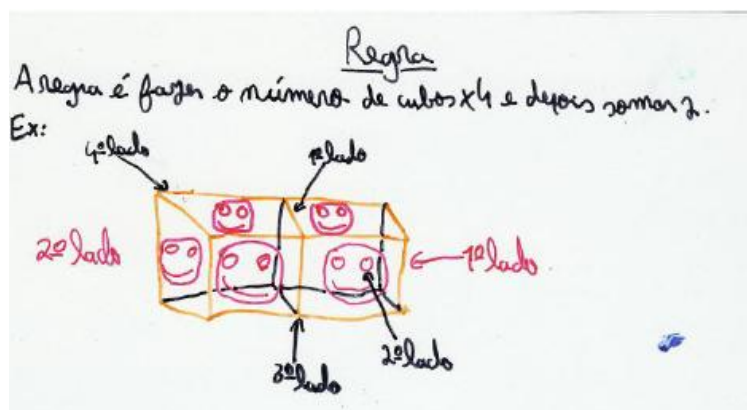 Regra
A regra é fazer o número de cubos x4 e depois somar 2.
Ex:
4º lado
1º lado
2º lado
1º lado
3º lado
2º lado